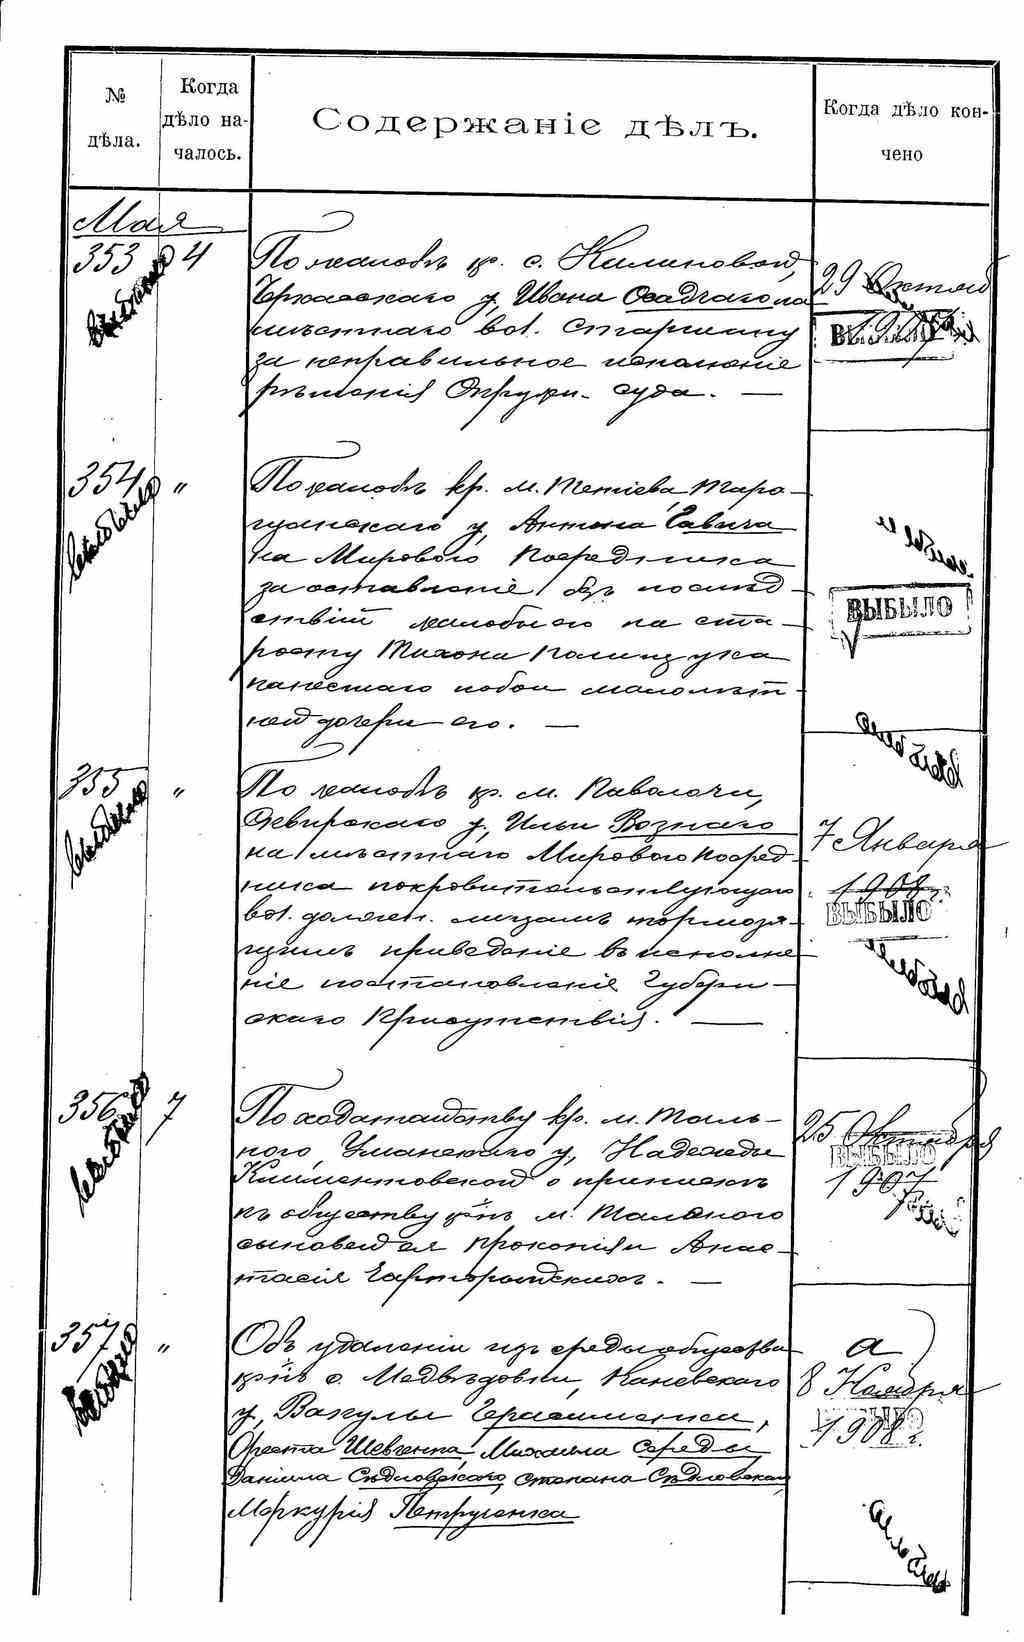 № дѣла.
Когда дѣло началось.
Содержаніе дѣлъ.
Когда дѣло кончено
Мая
353 4
По жалобѣ кр. с. Калиновой,
Черкасскаго у, Ивана Осадчаго на
мѣстнаго вол. Старшину
за неправильное исполненіе
рѣшенія Окружн. суда. —
29 Октяб
1907
ВЫБЫЛО
354 "
По жалобѣ кр. м. Тетіева, Тара-
щанскаго у, Антона Савича
на Мирового Посредника
за оставленіе безъ послѣд-
ствій жалобы его на ста-
росту Тихона Полищука
нанесшаго побои малолѣт-
ней дочери его. —
ВЫБЫЛО
355 "
По жалобѣ кр. м. Паволочи,
Сквирскаго у, Ильи Вознаго
на мѣстнаго Мирового Посред-
ника покровительствующаго
вол. должен. лицамъ тормозя-
щимъ приведеніе въ исполне-
ніе постановленія Губерн-
скаго Присутствія. —
7 Января
1908 г.
ВЫБЫЛО
356 7
По ходатайству кр. м. Таль-
наго, Уманскаго у, Надежды
Климентовской о припискѣ
къ обществу кр-нъ м. Тальнаго
сыновей ея Прокопія и Анас-
тасія Чарторыйскихъ. —
25 Октября
ВЫБЫЛО
1907
357 "
Объ удаленіи изъ среды общества
кр-нъ с. Медвѣдовки, Каневскаго
у, Вакулы Герасименка,
Ореста Шевченка, Михаила Середы,
Даніила Сѣдловскаго, Степана Сѣдловскаго,
Меркурія Петрученка
а
8 Ноября
1908 г.